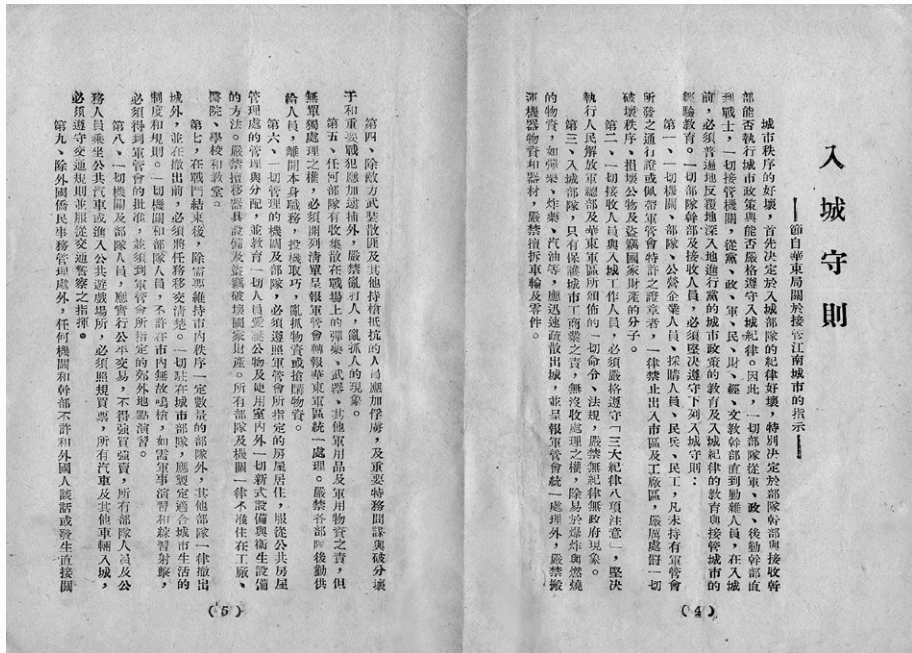 入城守則
──節自華東局關於接管江南城市的指示──
城市秩序的好壞，首先決定於入城部隊的紀律好壞，特別決定於部隊幹部與接收幹
部能否執行城市政策與能否嚴格遵守入城紀律。因此，一切部隊從軍、政、後勤幹部直
到戰士，一切接管機關，從黨、政、軍、民、財、經、文教幹部直到勤雜人員，在入城
前，必須普遍地反覆地深入地進行黨的城市政策的教育及入城紀律的教育與接管城市的
經驗教育。一切部隊幹部及接收人員，必須堅決遵守下列入城守則：
第一、一切機關、部隊、公營企業人員、採購人員、民兵、民工，凡未持有軍管會
所發之通行證或佩帶軍管會特許之證章者，一律禁止出入市區及工廠區，嚴厲處罰一切
破壞秩序、損壞公物及盜竊國家財產的分子。
第二、一切接收人員與入城工作人員，必須嚴格遵守「三大紀律八項注意」，堅決
執行人民解放軍總部及華東軍區所頒佈的一切命令、法規，嚴禁無紀律無政府現象。
第三、入城部隊，只有保護城市工商業之責，無沒收處理之權，除易於爆炸與燃燒
的物資，如彈藥、炸藥、汽油等，應迅速疏散出城，並呈報軍管會統一處理外，嚴禁搬
運機器物資和器材，嚴禁擅拆車輪及零件。
(4)
第四、除敵方武裝散匪及其他持槍抵抗的人員應加俘虜，及重要特務間諜與破分壞
子和重要戰犯應加逮捕外，嚴禁亂打人，亂抓人的現象。
第五、任何部隊有收集散在戰場上的彈藥、武器、其他軍用品及軍用物資之責，但
無單獨處理之權，必須開列清單呈報軍管會轉報華東軍區統一處理。嚴禁各部隊後勤供
給人員，離開本身職務，投機取巧，亂抓物資或搶購物資。
第六、一切管理的機關及部隊，必須遵照軍管會所指定的房屋居住，服從公共房屋
管理處的管理與分配，並教育一切人員愛護公物及使用室內外一切新式設備與衛生設備
的方法。嚴禁擅移器具設備及盜竊破壞國家財產。所有部隊及機關一律不准住在工廠、
醫院、學校和教堂。
第七、在戰鬥結束後，除需要維持市內秩序一定數量的部隊外，其他部隊一律撤出
城外，並在撤出前，必須將任務移交清楚。一切駐在城市部隊，應製定適合城市生活的
制度和規則。一切機關和部隊人員，不許在市內無故鳴槍，如需軍事演習和練習射擊，
必須得到軍管會的批准，並須到軍管會所指定的郊外地點演習。
第八、一切機關及部隊人員，應實行公平交易，不得強買強賣，所有部隊人員及公
務人員乘坐公共汽車或進入公共遊戲場所，必須照規買票，所有汽車及其他車輛入城，
必須遵守交通規則並服從交通警察之指揮。
第九、除外國僑民事務管理處外，任何機關和幹部不許和外國人談話或發生直接關
(5)